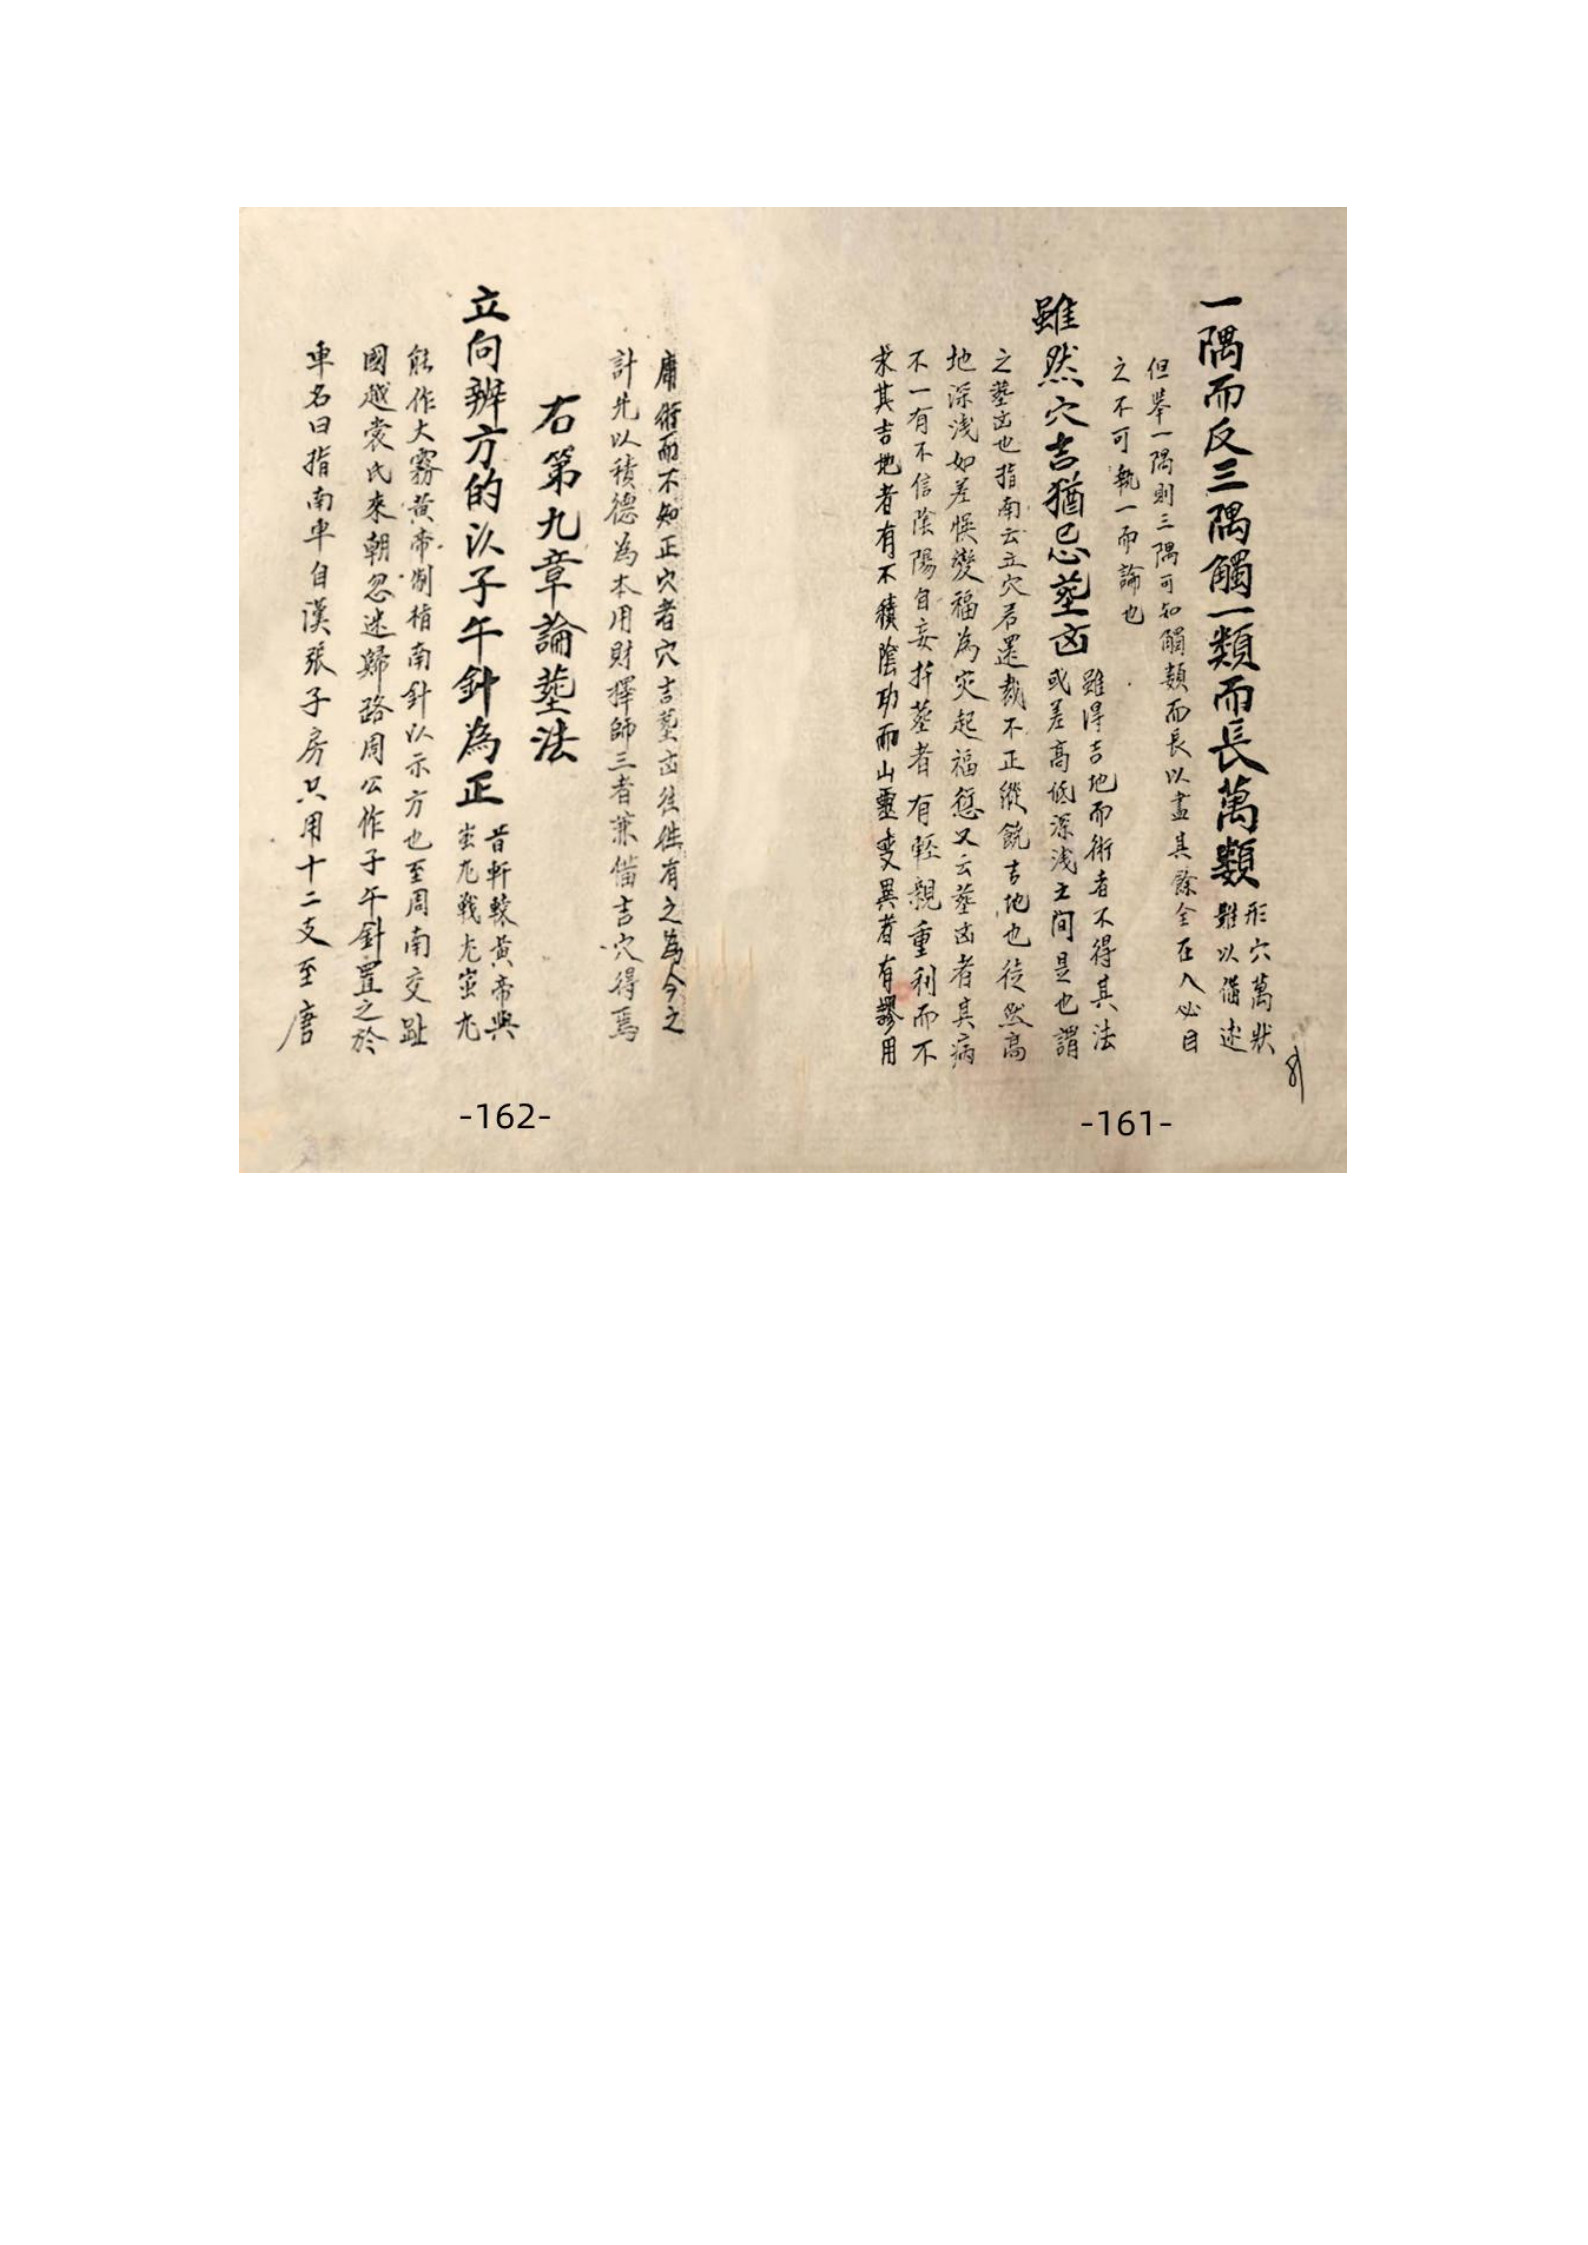 一隅而反三隅觸一類而長萬類形穴萬狀
雖以備述
但舉一隅則三隅可知觸類而長以盡其餘全在入必目
之不可執一而論也
雖然穴吉猶忌塟凶雖得吉地而術者不得其法
或差高低深浅土間是也謂
之塟凶也指南云立穴若還裁不正縱饒吉地也徒然高
地深浅如差悞變福為灾起福愆又云塟凶者其病
不一有不信陰陽自妄扦塟者有輕親重利而不
求其吉地者有不積陰功而山靈变異者有謬用
-161-
庸術而不知正穴者穴吉塟凶徃徃有之為今之
計先以積德為本用財擇師三者兼備吉穴得焉
右第九章論塟法
立向辨方的以子午針為正昔軒轅黃帝與
蚩尤戰尤蚩尤
能作大霧黃帝制指南針以示方也至周南交趾
國越裳氏來朝忽迷歸路周公作子午針置之於
車名曰指南車自漢張子房只用十二支至唐
-162-